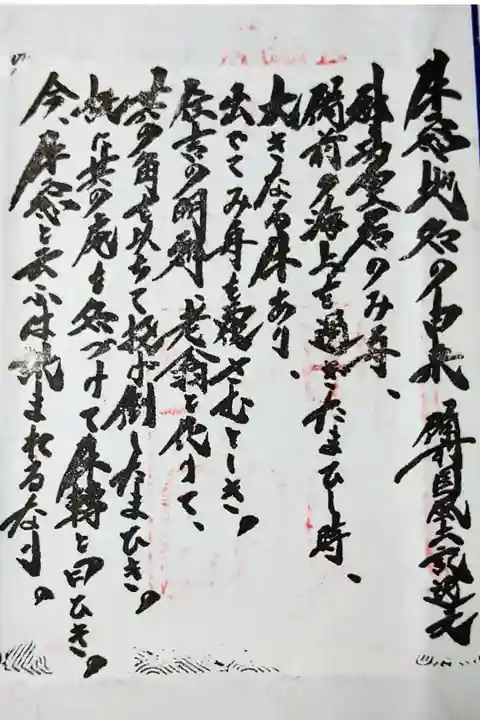 牛窓地名の由来 備前国風土記逸文
神功皇后のみ舟、
備前の海上を過ぎたまひし時、
大きなる牛あり、
出でてみ舟を覆さむとしき。
住吉の明神、老翁と化りて、
其の角を以ちて投げ倒したまひき。
故に其の処を名づけて牛転と曰ひき。
今、牛窓と云ふは訛まれるなり。